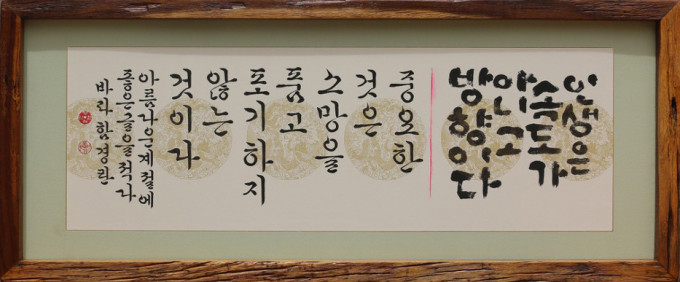 인생은
속도가
아니고
방향이다
중요한
것은
소망을
품고
포기하지
않는
것이다
아름다운계절에
좋은글을적다
함경란